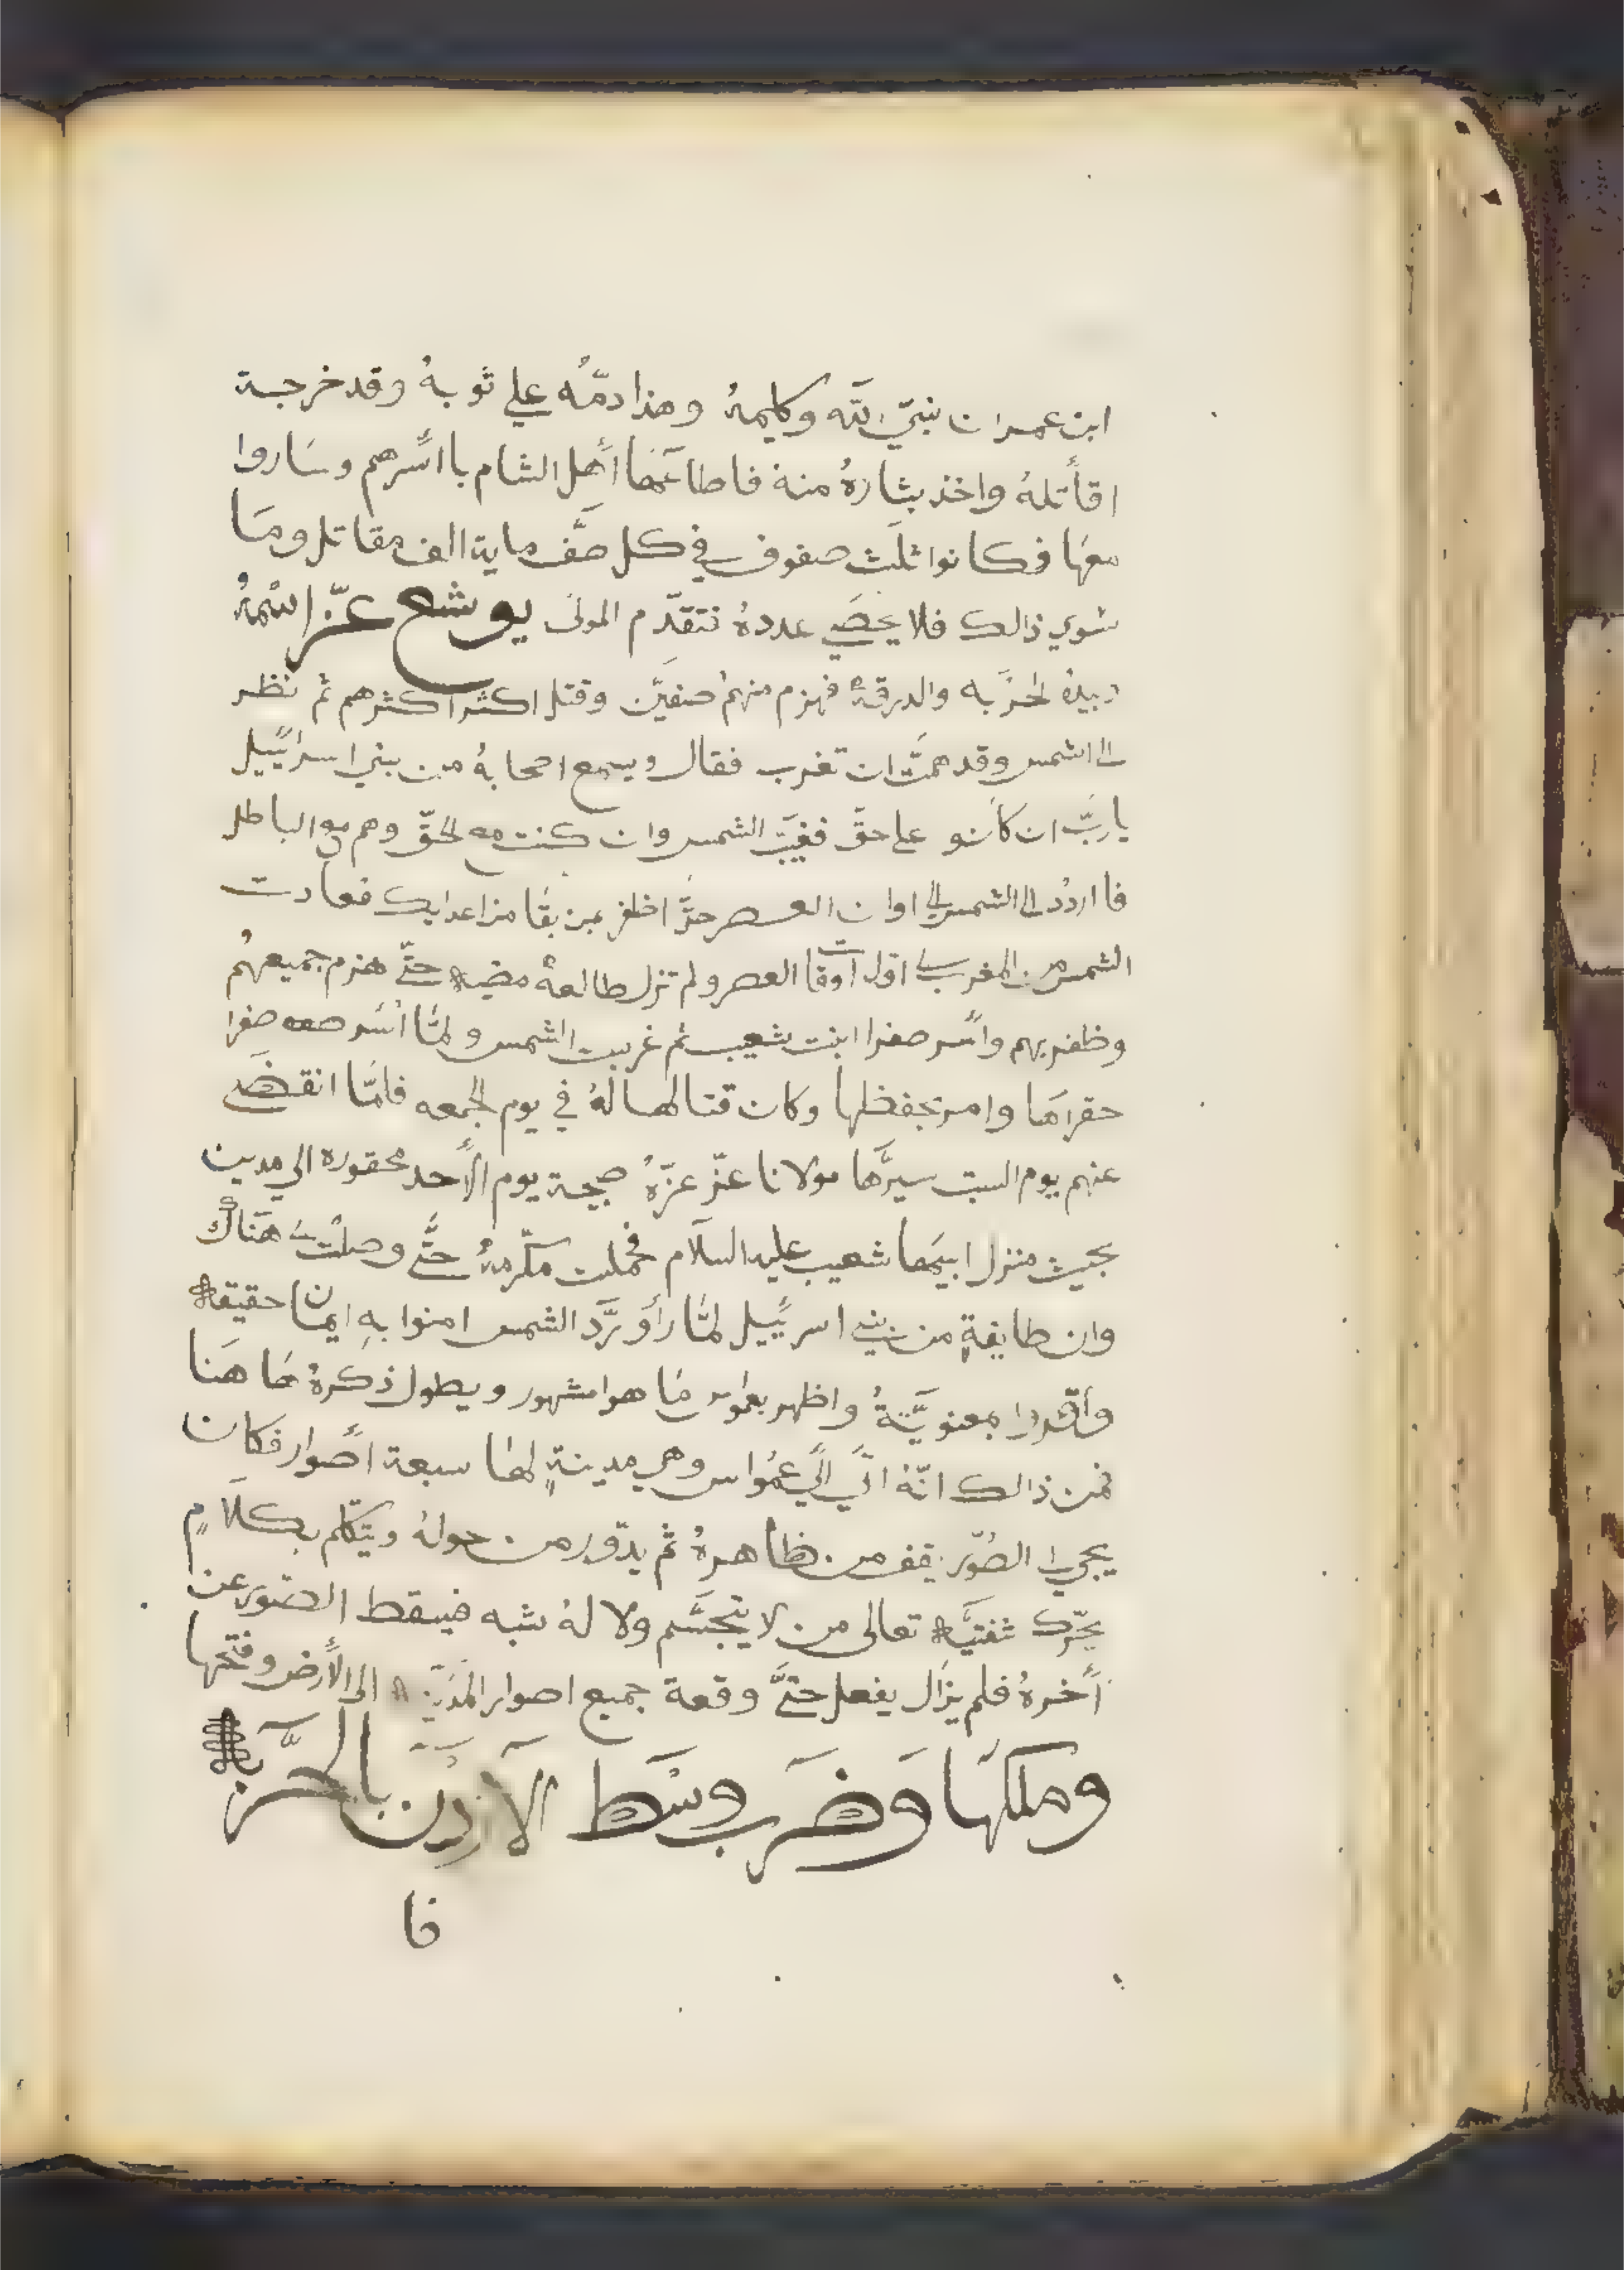 ابن عمران نبيّ الله وكليمهُ وهذا دمّهُ علي ثوبهُ وقد خرجة
اقأتلهُ واخذ بثارهُ منهُ فاطاعَها أهل الشام بااسّرهم وسَاروا
معهَا فكانوا ثلَث صفوف في كل صَف ماية الف مقاتل ومَا
سَوي ذالك فلا يحصَي عددهُ فتقدّم المولى يوشع عزّ اسمهُ
وبيدهُ الحَرّبه والدرقهْ فهزم منهمُ صنفيَّن وقتل اكثر اكثرهم ثم نظر
الى الشمس وقد همَّت ان تغرب فقال ويسمع اصحابهُ من بني اسرآئييل
يا ربّ ان كاَنو على حقّ فغيبّ الشمس وان كنت مع الحقّ وهم مع الباطل
فا اردُد الى الشمس الي اوان العصر حتَّى اظفر بمن بقَا من اعدايك فعادت
الشمس من المغرب الي اول أوقات العصر ولم تزل طالعهْ مضيه حتَّى هزم جميعهُم
وظفر بهم واسّر صفرا ابنت شعيب ثم غربت الشمس ولمَّا اسَر صفرا
حقرامَا وامر بحفظها وكان قتالها لهُ في يوم الجمعه فامَّا انقضَى
عنهم يوم السبت سيرَّها مولانا عزّ عزّهُ صبيحة يوم الأحد محقوره الي مدين
بحيث منزل ابيَها شعيب عليه السلاَم فحملت مكّرمهُ حتَّى وصلَت هَناك
وان طايفةٍ من بني اسريّيل لمَّا رأَو رَّد الشمس امنوا بهِ ايماناً حقيقه
وأقروا بمعنويَّتهُ واظهر بعَواس مَا هوا مشهور ويطول ذكرهُ هَا هَنا
فمن ذالك انّهُ اتَى الَي عمُواس وهي مدينةٍ لهَا سبعة اصّوار فكان
يجي الي الصُوّر يقف من ظاهرهُ ثم يدّور من حولهُ ويتكّلم بكلاَمٍ
يحرّك شفتيَّه تعالى من لا يتجسَّم ولا لهُ شبه فيسقط الصَور عن
أخرهُ فلم يزَال يفعل حتَّى وقعة جميع اصوار المَديَنه الى الأرض وفتحها
وملكهَا وَضَرب وسَط الآردَن بالحرَّبه
فا